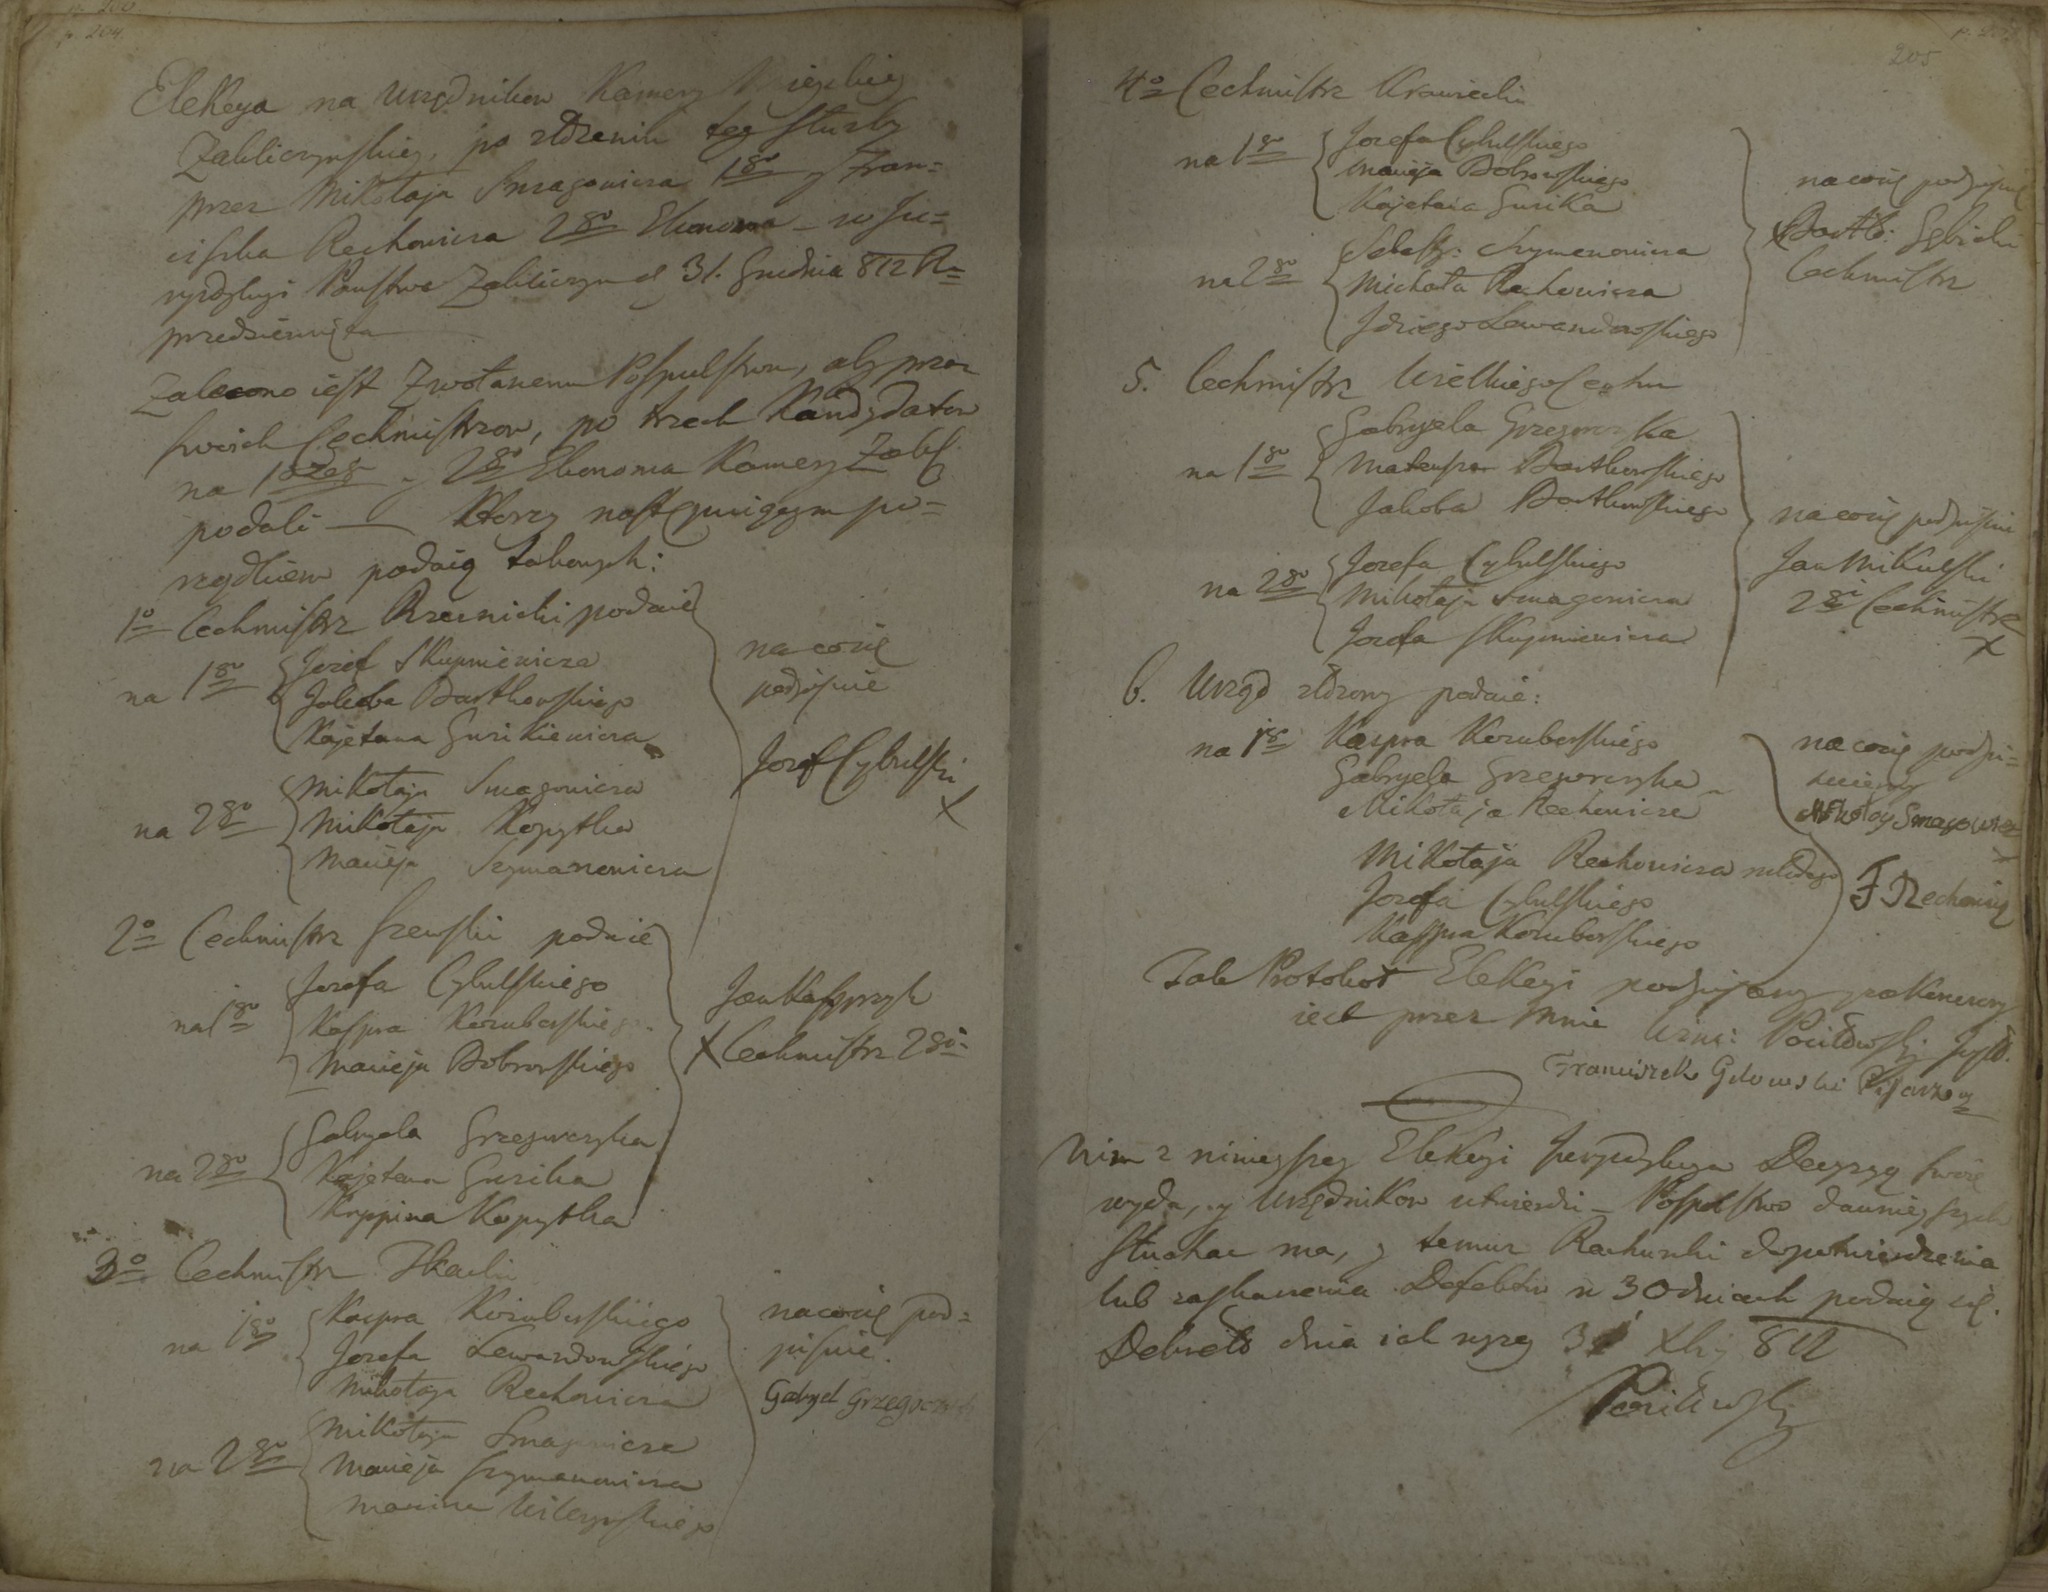 p. 204.
Elekcya na Urzędnikow Kamery Mieyskiey
Zakliczynskiey, po złożeniu tey służby
przez Mikołaja Smagowicza 1go y Fran=
ciszka Rechowicza 2go Ekonoma – w Ju=
ryzdykcyi Panstwa Zakliczyn d 31. Grudnia 812 R
przedsiewzięta
Zalecono iest Zwołanemu Pospulstwu, aby przez
swoich Cechmistrzow, po trzech Kandydatow
na 1szeg y 2go Ekonoma Kamery Zakl.
podali — Ktorzy następuiącym po=
rządkiem podaią takowych:
1o Cechmistrz Rzeznicki podaie
na 1go Jozef Skupniewicza
Jakoba Bartkowskiego
Kajetana Gurikiewicza
na 2go Mikołaja Smagowicza
Mikołaja Kopytka
Macieja Szymanowicza
na co się
podpisuie
Jozef Cybulski
X
2o Cechmistrz Szewski podaie
na 1go Jozefa Cybulskiego
Kaspra Kozuborskiego
Macieja Dobrowskiego
na 2go Gabryela Grzegorczyka
Kajetana Gurika
Kryspina Kopytka
Jan Kasprzyk
X Cechmistrz 2gi
3o Cechmistrz Tkacki
na 1go Kaspra Kozuborskiego
Jozefa Lewandowskiego
Mikołaja Rechowicza
na 2go Mikołaja Smagowicza
Macieja Szymanowicza
Marcina Wilczynskiego
na co się pod=
pisuie.
Gabryel Grzegorczyk
205
4o Cechmistrz Krawiecki
na 1go Jozefa Cybulskiego
Macieja Dobrowskiego
Kajetana Gurika
na 2go Sebasty: Szymanowicza
Michała Rechowicza
Idziego Lewandowskiego
na co się podpisuie
X Bartło: Gębicki
Cechmistrz
5. Cechmistrz Wielkiego Cechu
na 1go Gabryela Grzegorczyka
Bartkowskiego
Jakoba Bartkowskiego
na 2go Jozefa Cybulskiego
Mikołaja Smagowicza
Jozefa Skupniewicza
na co się podpisuie
Jan Mikulski
2gi Cechmistrz
X
6. Urząd złożony podaie:
na 1go Kaspra Kozuborskiego
Gabryela Grzegorczyka
Mikołaja Rechowicza
Mikołaja Rechowicza młodego
Jozefa Cybulskiego
Kaspra Kozuborskiego
na co się podpi=
suiemy
Mikołay Smagowicz
F Rechowicz
Tak Protokoł Elekcyi podpisany
iest przez mnie
Franciszek Gutowski Pisarz
Nim z ninieyszey Elekcyi Juryzdykcya Decyzyą swoię
wyda, y Urzędnikow utwierdzi – Pospulstwo dawnieyszych
słuchac ma, y temuz Rachunki do potwierdzenia
lub zaskarzenia Defektow w 30 dniach podaią się.
Debrets dnia iak wyzey 31 Xbr 812